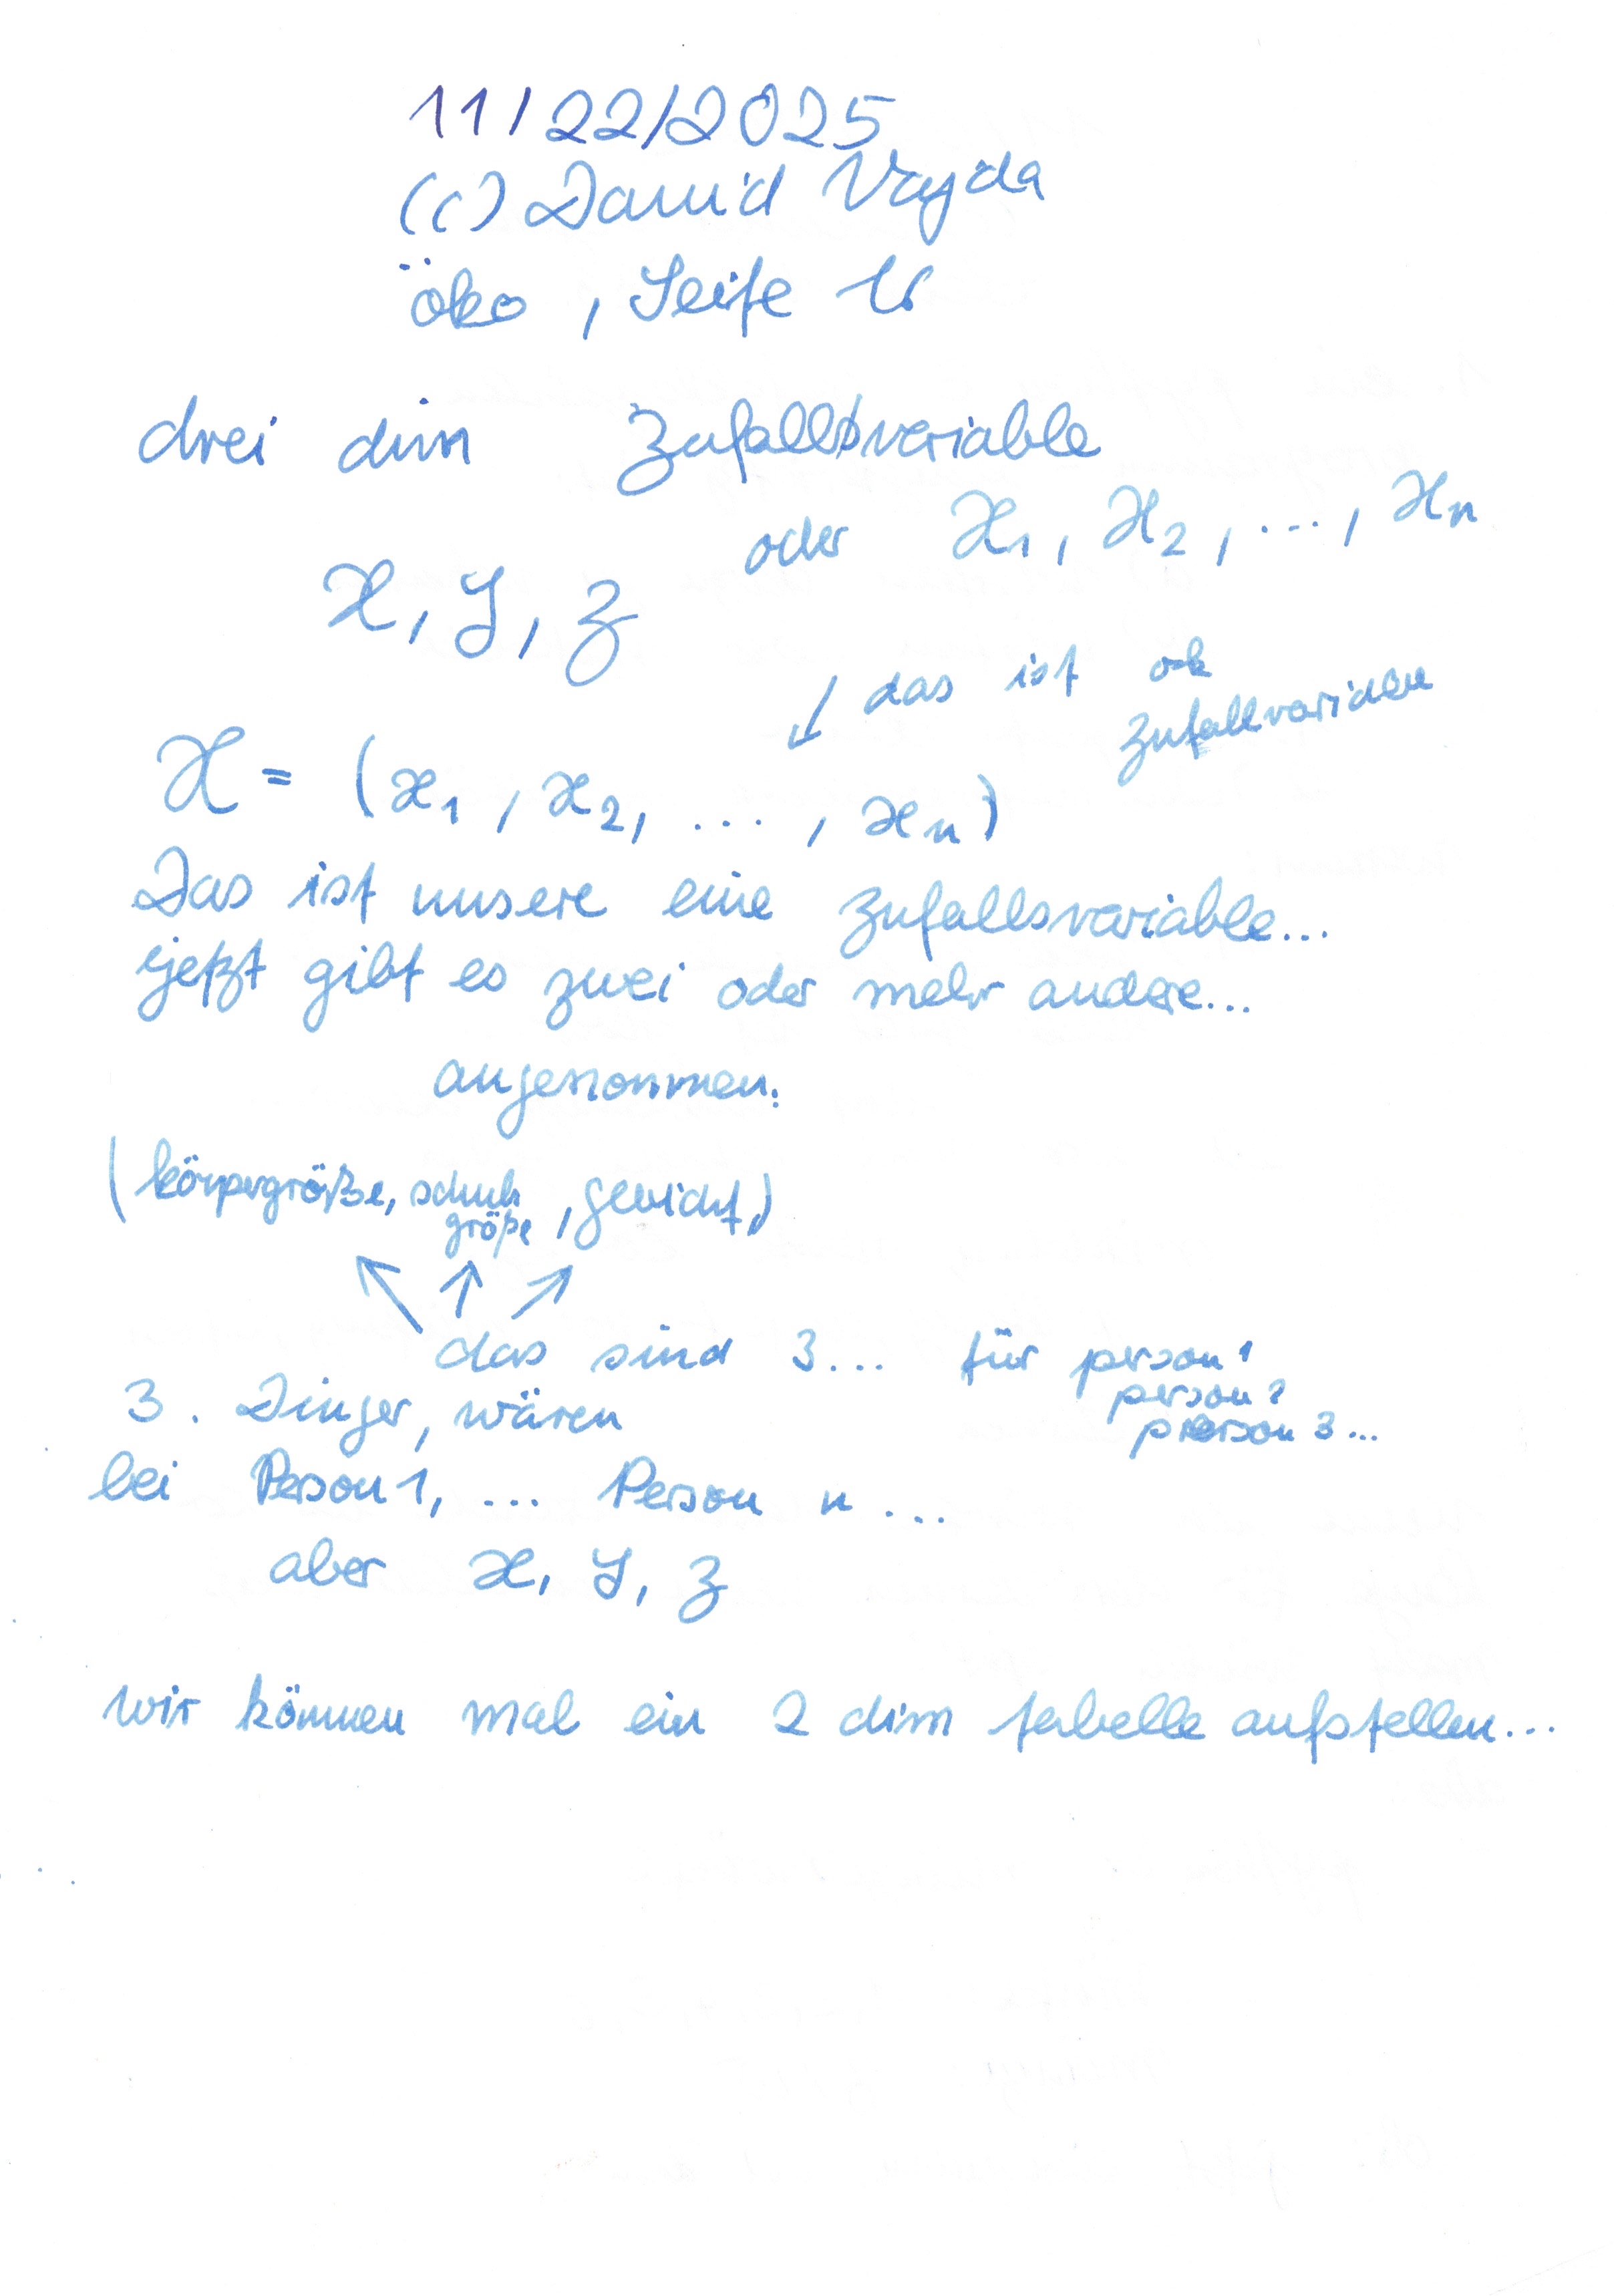 11/22/2025
(c) David Vajda
öko, Seite 16
drei dim Zufallsvariable
oder X1, X2, ..., Xn
X, Y, Z
↓ das ist ok
Zufallvariablen
X = (x1, x2, ..., xn)
Das ist unsere eine Zufallsvariable...
jetzt gibt es zwei oder mehr andere...
angenommen:
(körpergröße, schuh
größe, gewicht,)
das sind 3... für person 1
person 2
person 3...
3. Dinger, wären
bei Person 1, ... Person n ...
aber X, Y, Z
wir können mal ein 2 dim tabelle aufstellen...